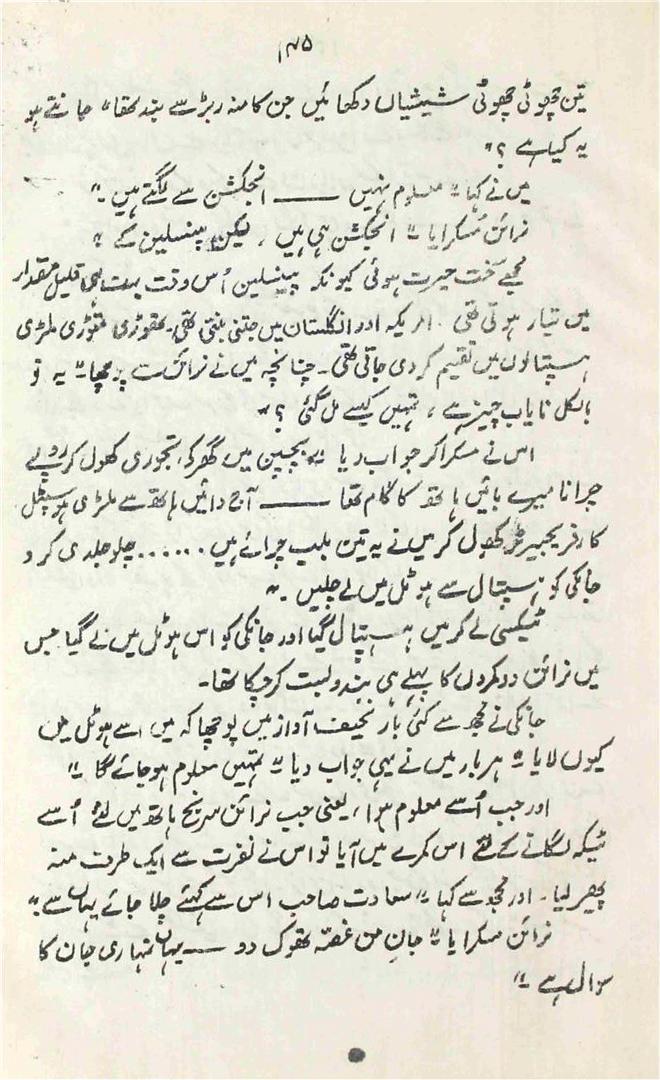 ۱۷۵
تین چھوٹی چھوٹی شیشیاں دکھائیں جن کا منہ ربڑ سے بند تھا " جانتے ہو
یہ کیا ہے ؟ "
میں نے کہا " معلوم نہیں ——— انجکشن سے لگتے ہیں ۔ "
نرائن مسکرایا " انجکشن ہی ہیں ، لیکن پینسلین کے "
مجھے سخت حیرت ہوئی کیونکہ پینسلین اُس وقت بہت ہی قلیل مقدار
میں تیار ہوتی تھی ۔ امریکہ اور انگلستان میں جتنی بنتی تھی ۔ تھوڑی تھوڑی ملڑی
ہسپتالوں میں تقسیم کر دی جاتی تھی ۔ چنانچہ میں نے نرائن سے پوچھا " یہ تو
بالکل نایاب چیز ہے ، تمہیں کیسے مل گئی ؟ "
اس نے مسکرا کر جواب دیا " بچپن میں گھر کی تجوری کھول کر روپے
چرانا میرے بائیں ہاتھ کا کام تھا ——— آج دائیں ہاتھ سے ملڑی ہوسپٹل
کا ریفریجیریٹر کھول کر میں نے یہ تین بلب چرائے ہیں ...... چلو جلدی کرو
جانکی کو ہسپتال سے ہوٹل میں لے چلیں ۔ "
ٹیکسی لے کر میں ہسپتال گیا اور جانکی کو اس ہوٹل میں لے گیا جس
میں نرائن دو کمروں کا پہلے ہی بندوبست کر چکا تھا ۔
جانکی نے مجھ سے کئی بار نحیف آواز میں پوچھا کہ میں اسے ہوٹل میں
کیوں لایا " ہر بار میں نے یہی جواب دیا " تمہیں معلوم ہو جائے گا "
اور جب اُسے معلوم ہوا ، یعنی جب نرائن سرنج ہاتھ میں لئے اُسے
ٹیکہ لگانے کے لئے اس کمرے میں آیا تو اس نے نفرت سے ایک طرف منہ
پھیر لیا ۔ اور مجھ سے کہا " سعادت صاحب اس سے کہئے چلا جائے یہاں سے ۔ "
نرائن مسکرایا " جانِ من غصّہ تھوک دو —— یہاں تمہاری جان کا
سوال ہے ۔ "